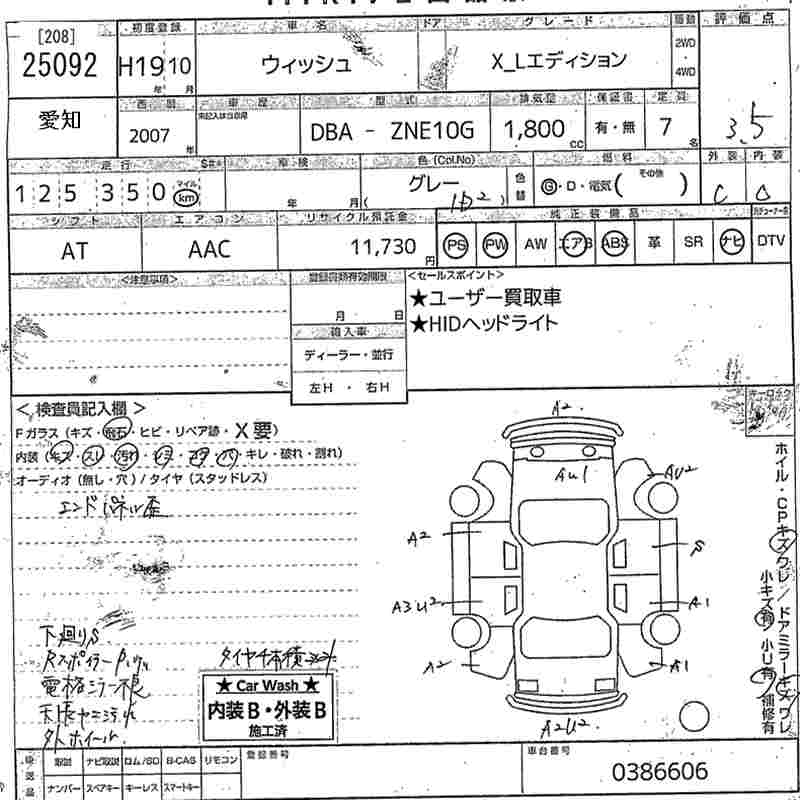 [208]
25092
初度登録
H19 10
年 月
車名
ウィッシュ
ドア
グレード
X_Lエディション
駆動
2WD
4WD
評価点
3.5
愛知
西暦
2007
年
車歴
未記入は自家用
型式
DBA - ZNE10G
排気量
1,800
cc
保証書
有・無
定員
7
名
外装 内装
C D
走行
125,350
マイル
km
車検
年 月(
色(Col.No)
グレー
1D2 )
色替
燃料
G・D・電気( その他 )
シフト
AT
エアコン
AAC
リサイクル預託金
11,730
円
純正装備品
PS PW AW エアB ABS 革 SR ナビ DTV
<注意事項>
登録書類有効期限
月 日
輸入車
ディーラー・並行
左H ・ 右H
<セールスポイント>
★ユーザー買取車
★HIDヘッドライト
< 検査員記入欄 >
Fガラス (キズ・飛石・ヒビ・リペア跡・X要)
内装 (キズ・スレ・汚れ・シミ・コゲ・穴・キレ・破れ・割れ)
オーディオ (無し・穴) / タイヤ (スタッドレス)
エンドパネル歪
下廻りS
Rスポイラー
電格ミラー不良
天張ヤニ汚れ
外ホイール
タイヤ4本積
★ Car Wash ★
内装B・外装B
施工済
A2
AU1
AU2
A2
S
A3U2
A1
A2
A1
A2U2
ホイル・CPキズワレ/ドアミラーキズワレ
小キズ有/小リ有/補修有
返送品
取説 ナビ取説 ロム/SD B-CAS リモコン
ナンバー スペアキー キーレス スマートキー
登録番号
車台番号
0386606